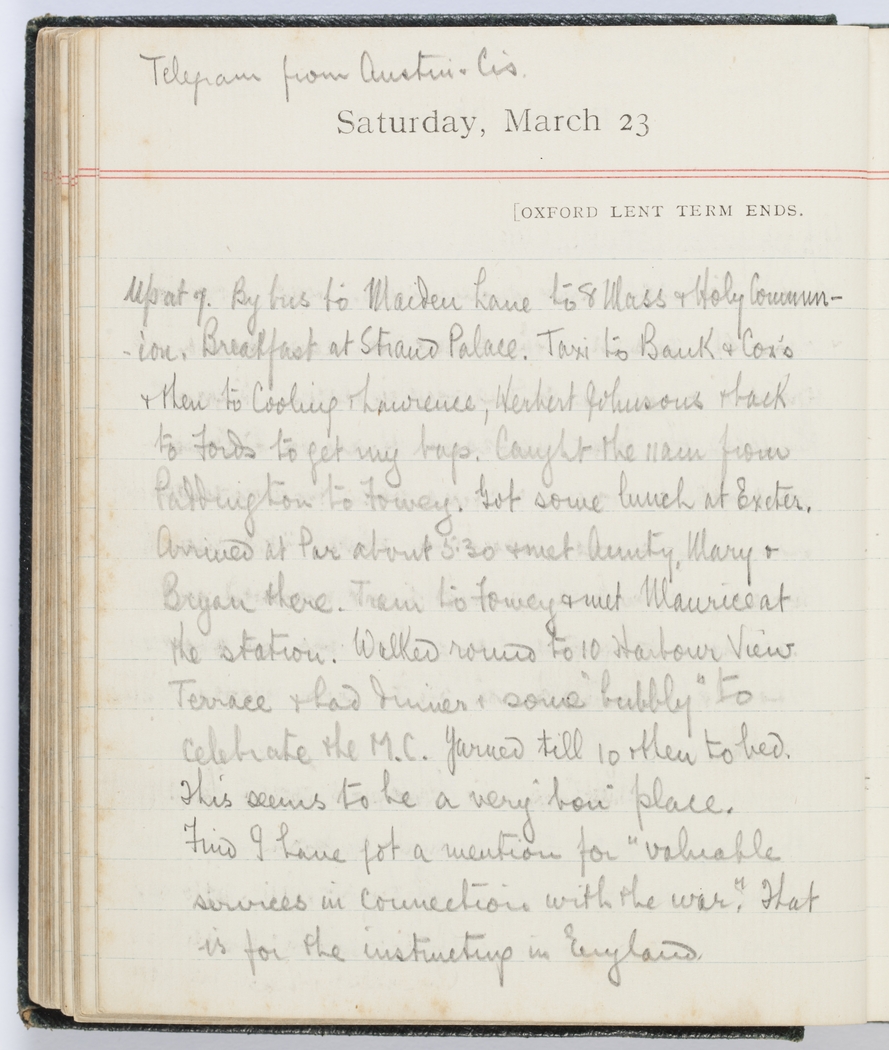 Telegram from Austin & Cis.
Saturday, March 23
[OXFORD LENT TERM ENDS.
Up at 7. By bus to Maiden Lane to 8 Mass & Holy Commun-
-ion. Breakfast at Strand Palace. Taxi to Bank & Cox's
& then to Cooling & Lawrence, Herbert Johnsons & back
to Fords to get my bag. Caught the 11am from
Paddington to Fowey. Got some lunch at Exeter.
Arrived at Par about 5.30 & met Aunty, Mary &
Bryan there. Train to Fowey & met Maurice at
the station. Walked round to 10 Harbour View
Terrace & had dinner & some "bubbly" to
celebrate the M.C. Yarned till 10 & then to bed.
This seems to be a very "bon" place.
Find I have got a mention for "valuable
services in connection with the war". That
is for the instructing in England.